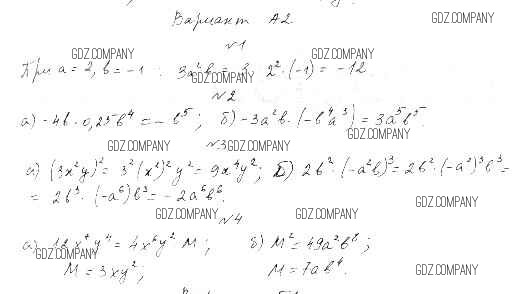 Вариант А2
GDZ.COMPANY
№1
GDZ.COMPANY GDZ.COMPANY
При a = 2, b = -1 : 3a²b = 3 · 2² · (-1) = -12.
GDZ.COMPANY
№2
а) -4b · 0,25b⁴ = -b⁵; б) -3a²b · (-b⁴a³) = 3a⁵b⁵.
GDZ.COMPANY
GDZ.COMPANY №3 GDZ.COMPANY
а) (3x²y)² = 3²(x²)²y² = 9x⁴y²; б) 2b² · (-a²b)³ = 2b² · (-a²)³b³ =
= 2b³ · (-a⁶)b³ = -2a⁶b⁶.
GDZ.COMPANY
GDZ.COMPANY №4 GDZ.COMPANY
а) 12x⁷y⁴ = 4x⁶y² M; б) M² = 49a²b⁸;
GDZ.COMPANY
M = 3xy²; M = 7ab⁴.
GDZ.COMPANY